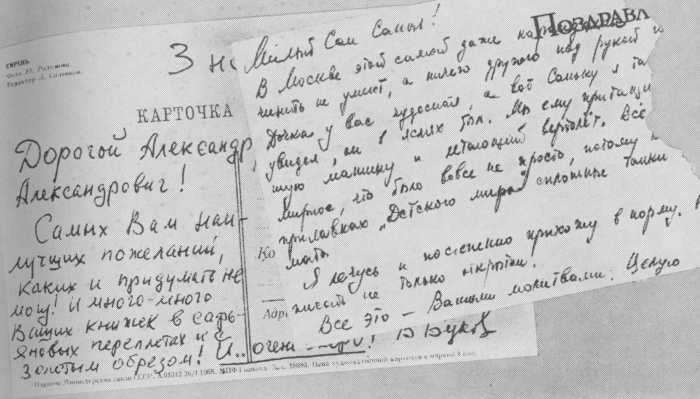 СИРЕНЬ
З на
КАРТОЧКА
Дорогой Александр
Александрович!
Самых Вам наи-
лучших пожеланий,
каких и придумать не
могу! И много-много
Ваших книжек в сафь-
яновых переплетах и с
золотым обрезом! И.. очень
Ко
Адр
ПОЗДРАВЛ
Милый Сан Саныч!
В Москве этой самой даже
чинить не умеют, а ничего другого под рукой
Дочка у вас чудесная, а вот Саньку я
увидел, он в яслях был. Мы ему притащи
шую машину и летающий вертолёт. Всё
мирное, что было вовсе не просто, потому
прилавках „Детского мира" сплошные танки
маты
Я лечусь и постепенно прихожу в норму.
писать не только открытки!
Все это – Вашими молитвами. Целую